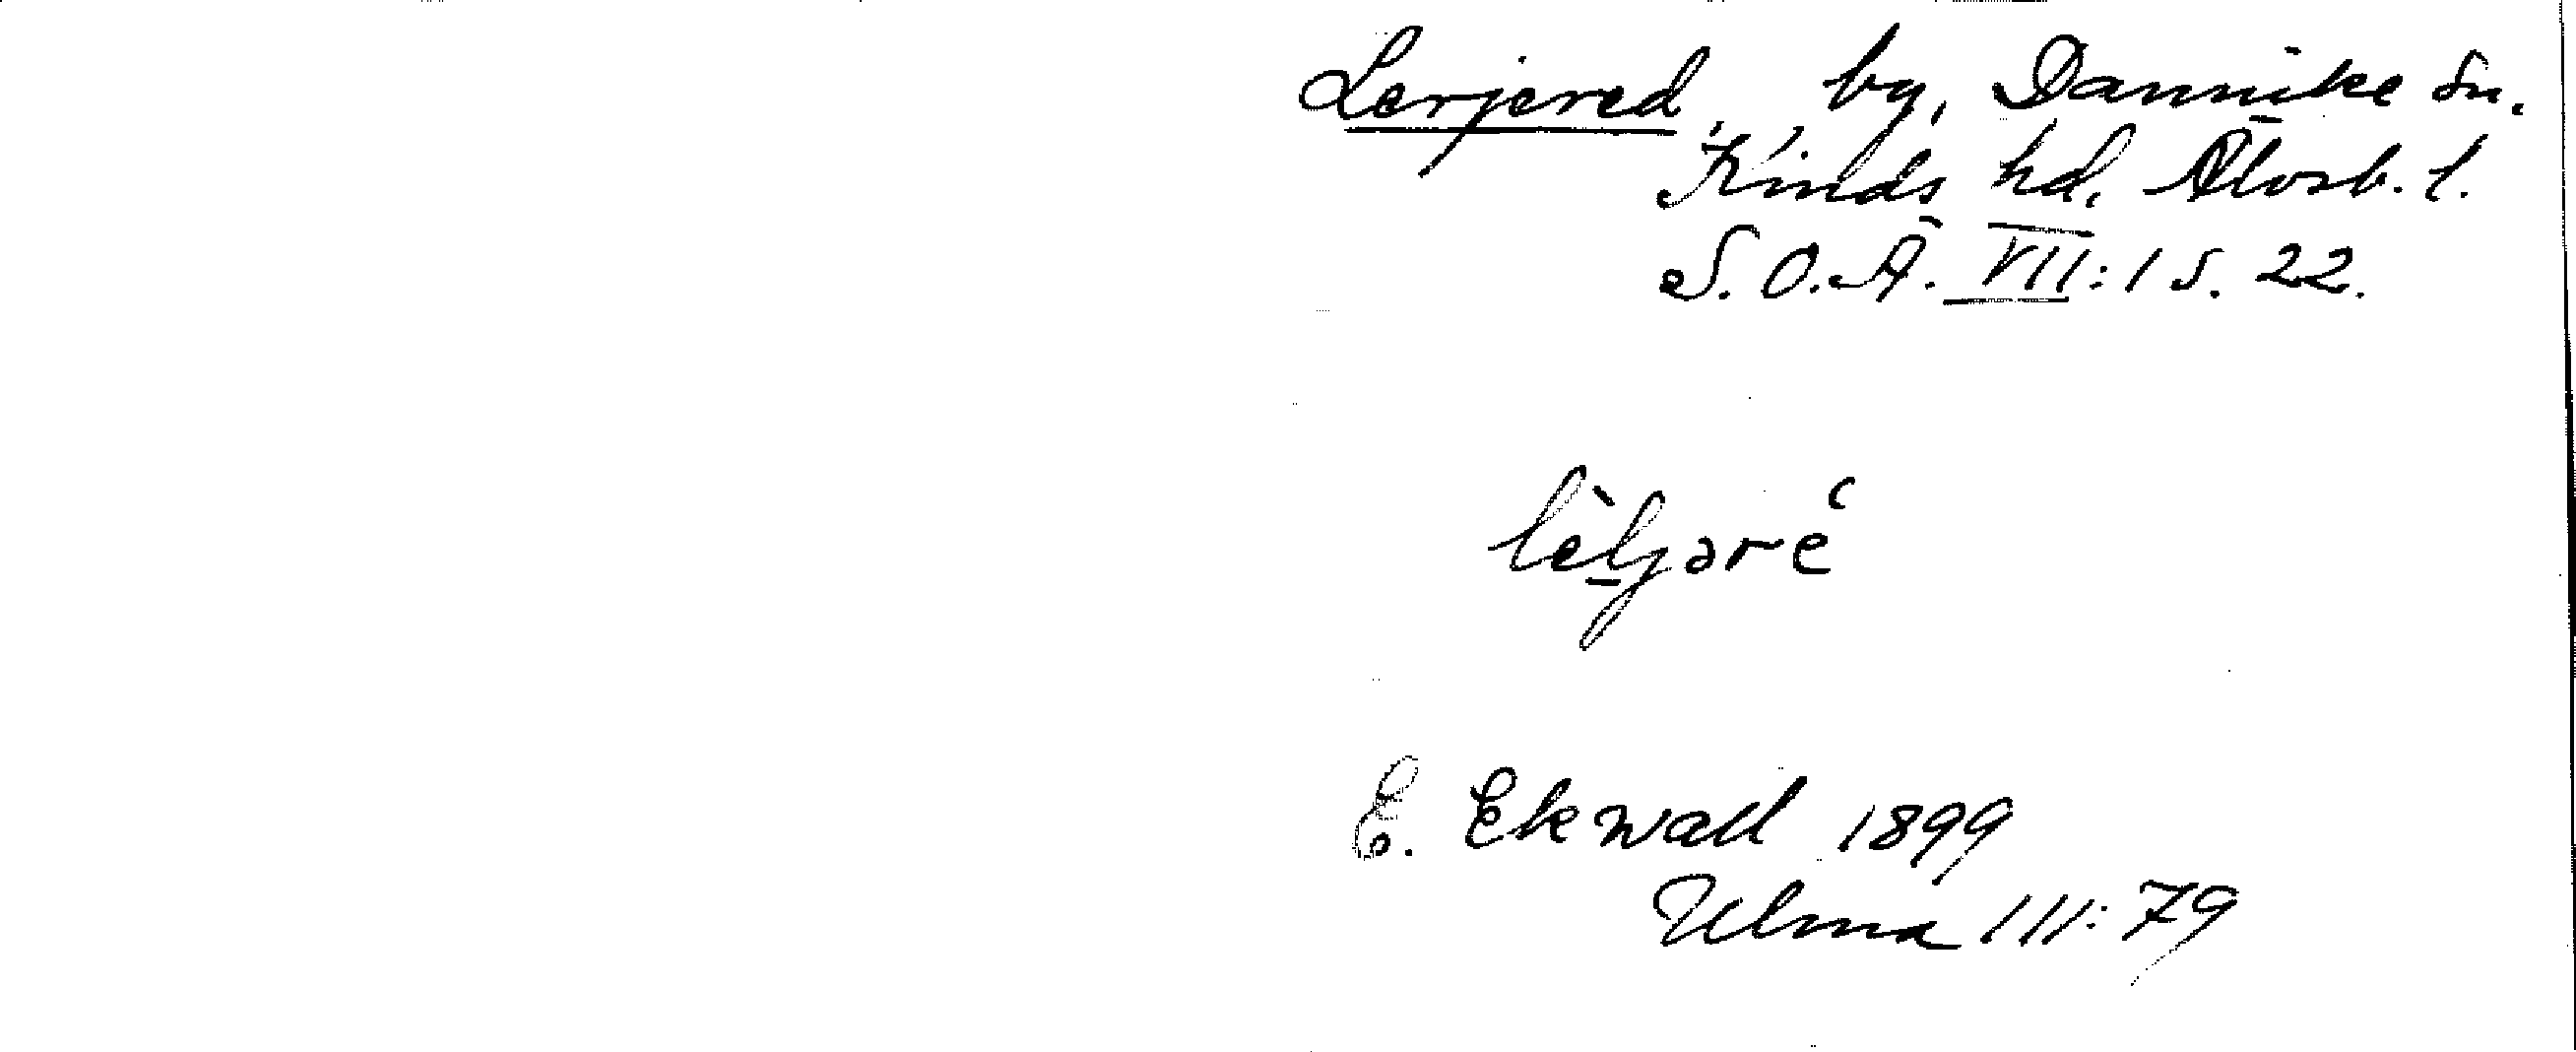 Lerjered, by, Dannike sn.
Kinds hd, Älvsb. l.
S. O. Ä. VII: 1 s. 22.
E. Ekwall 1899
Ulma III: 79